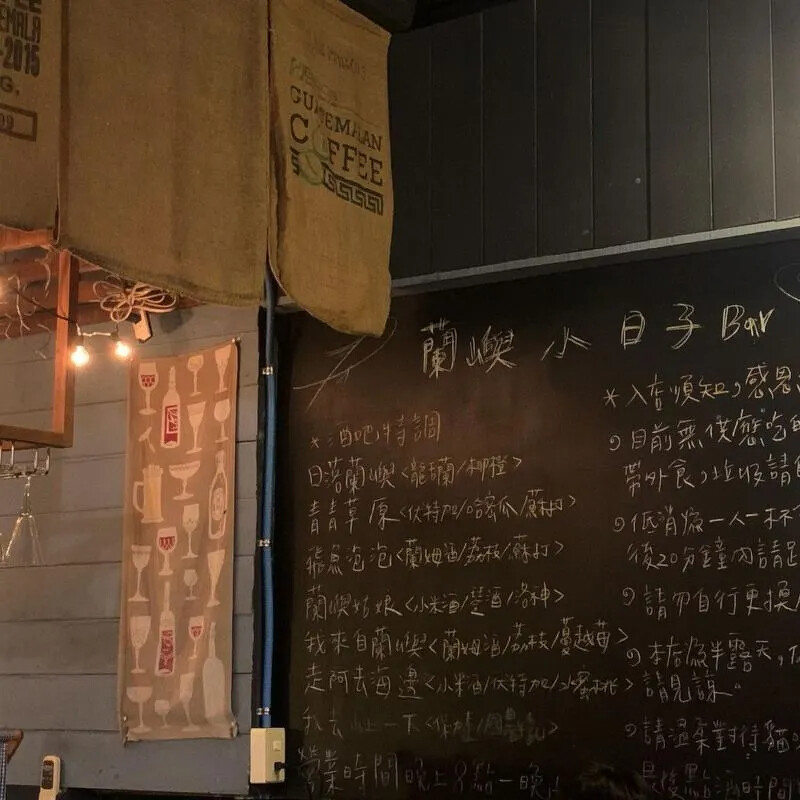 EMALA
-2015
G.
GUATEMALAN
COFFEE
蘭嶼小日子 Bar
*酒吧特調
日落蘭嶼<龍舌蘭/柳橙>
青青草原<伏特加/哈密瓜/蘇打>
飛魚泡泡<蘭姆酒/荔枝/蘇打>
蘭嶼姑娘<小米酒/洛神>
我來自蘭嶼<蘭姆酒/荔枝/蔓越莓>
走阿去海邊<小米酒/伏特加/水蜜桃>
我去山上一下
營業時間晚上
*入店須知,感恩
目前無供應吃
帶外食,垃圾請
低消為一人一杯
後20分鐘內請
請勿自行更換
本店為半露天,
請見諒
請溫柔對待貓
最後點酒時間